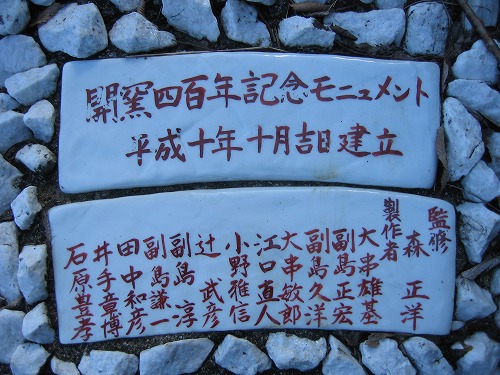 開窯四百年記念モニュメント
平成十年十月吉日建立
監修
森 正洋
製作者
大串雄基
副島正宏
副島久洋
大串敏郎
江口直人
小野雅信
辻 武彦
副島 淳
副島謙一
田中和彦
井手章博
石原豊孝